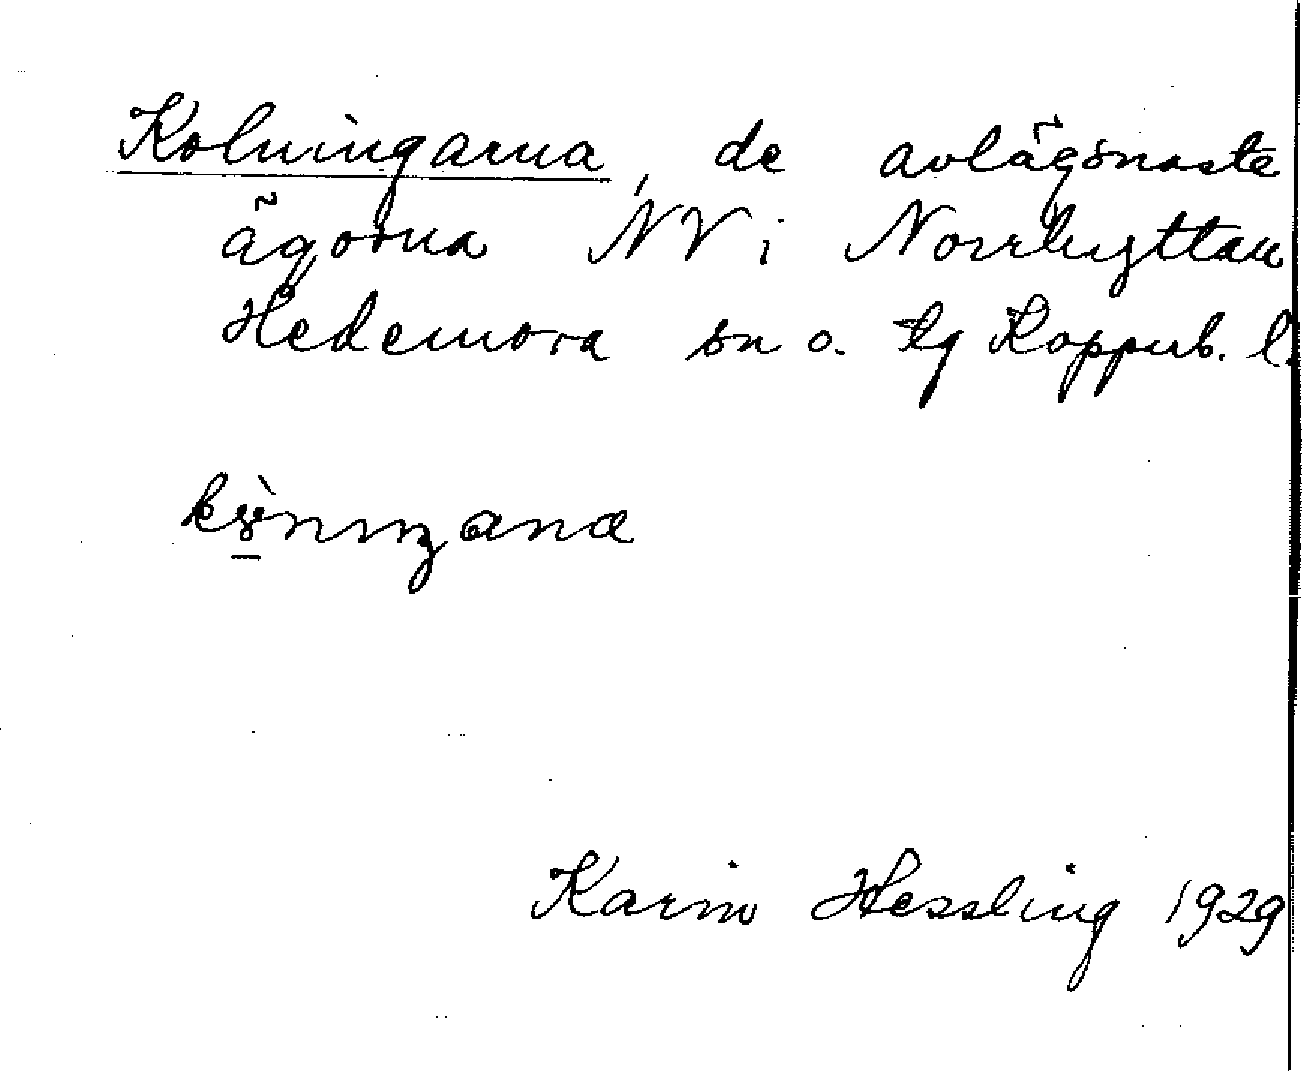 Kolningarna, de avlägsnaste
ägorna NV i Norrhyttan
Hedemora sn o. tg Koppurb. l.
Karin Hessling 1929